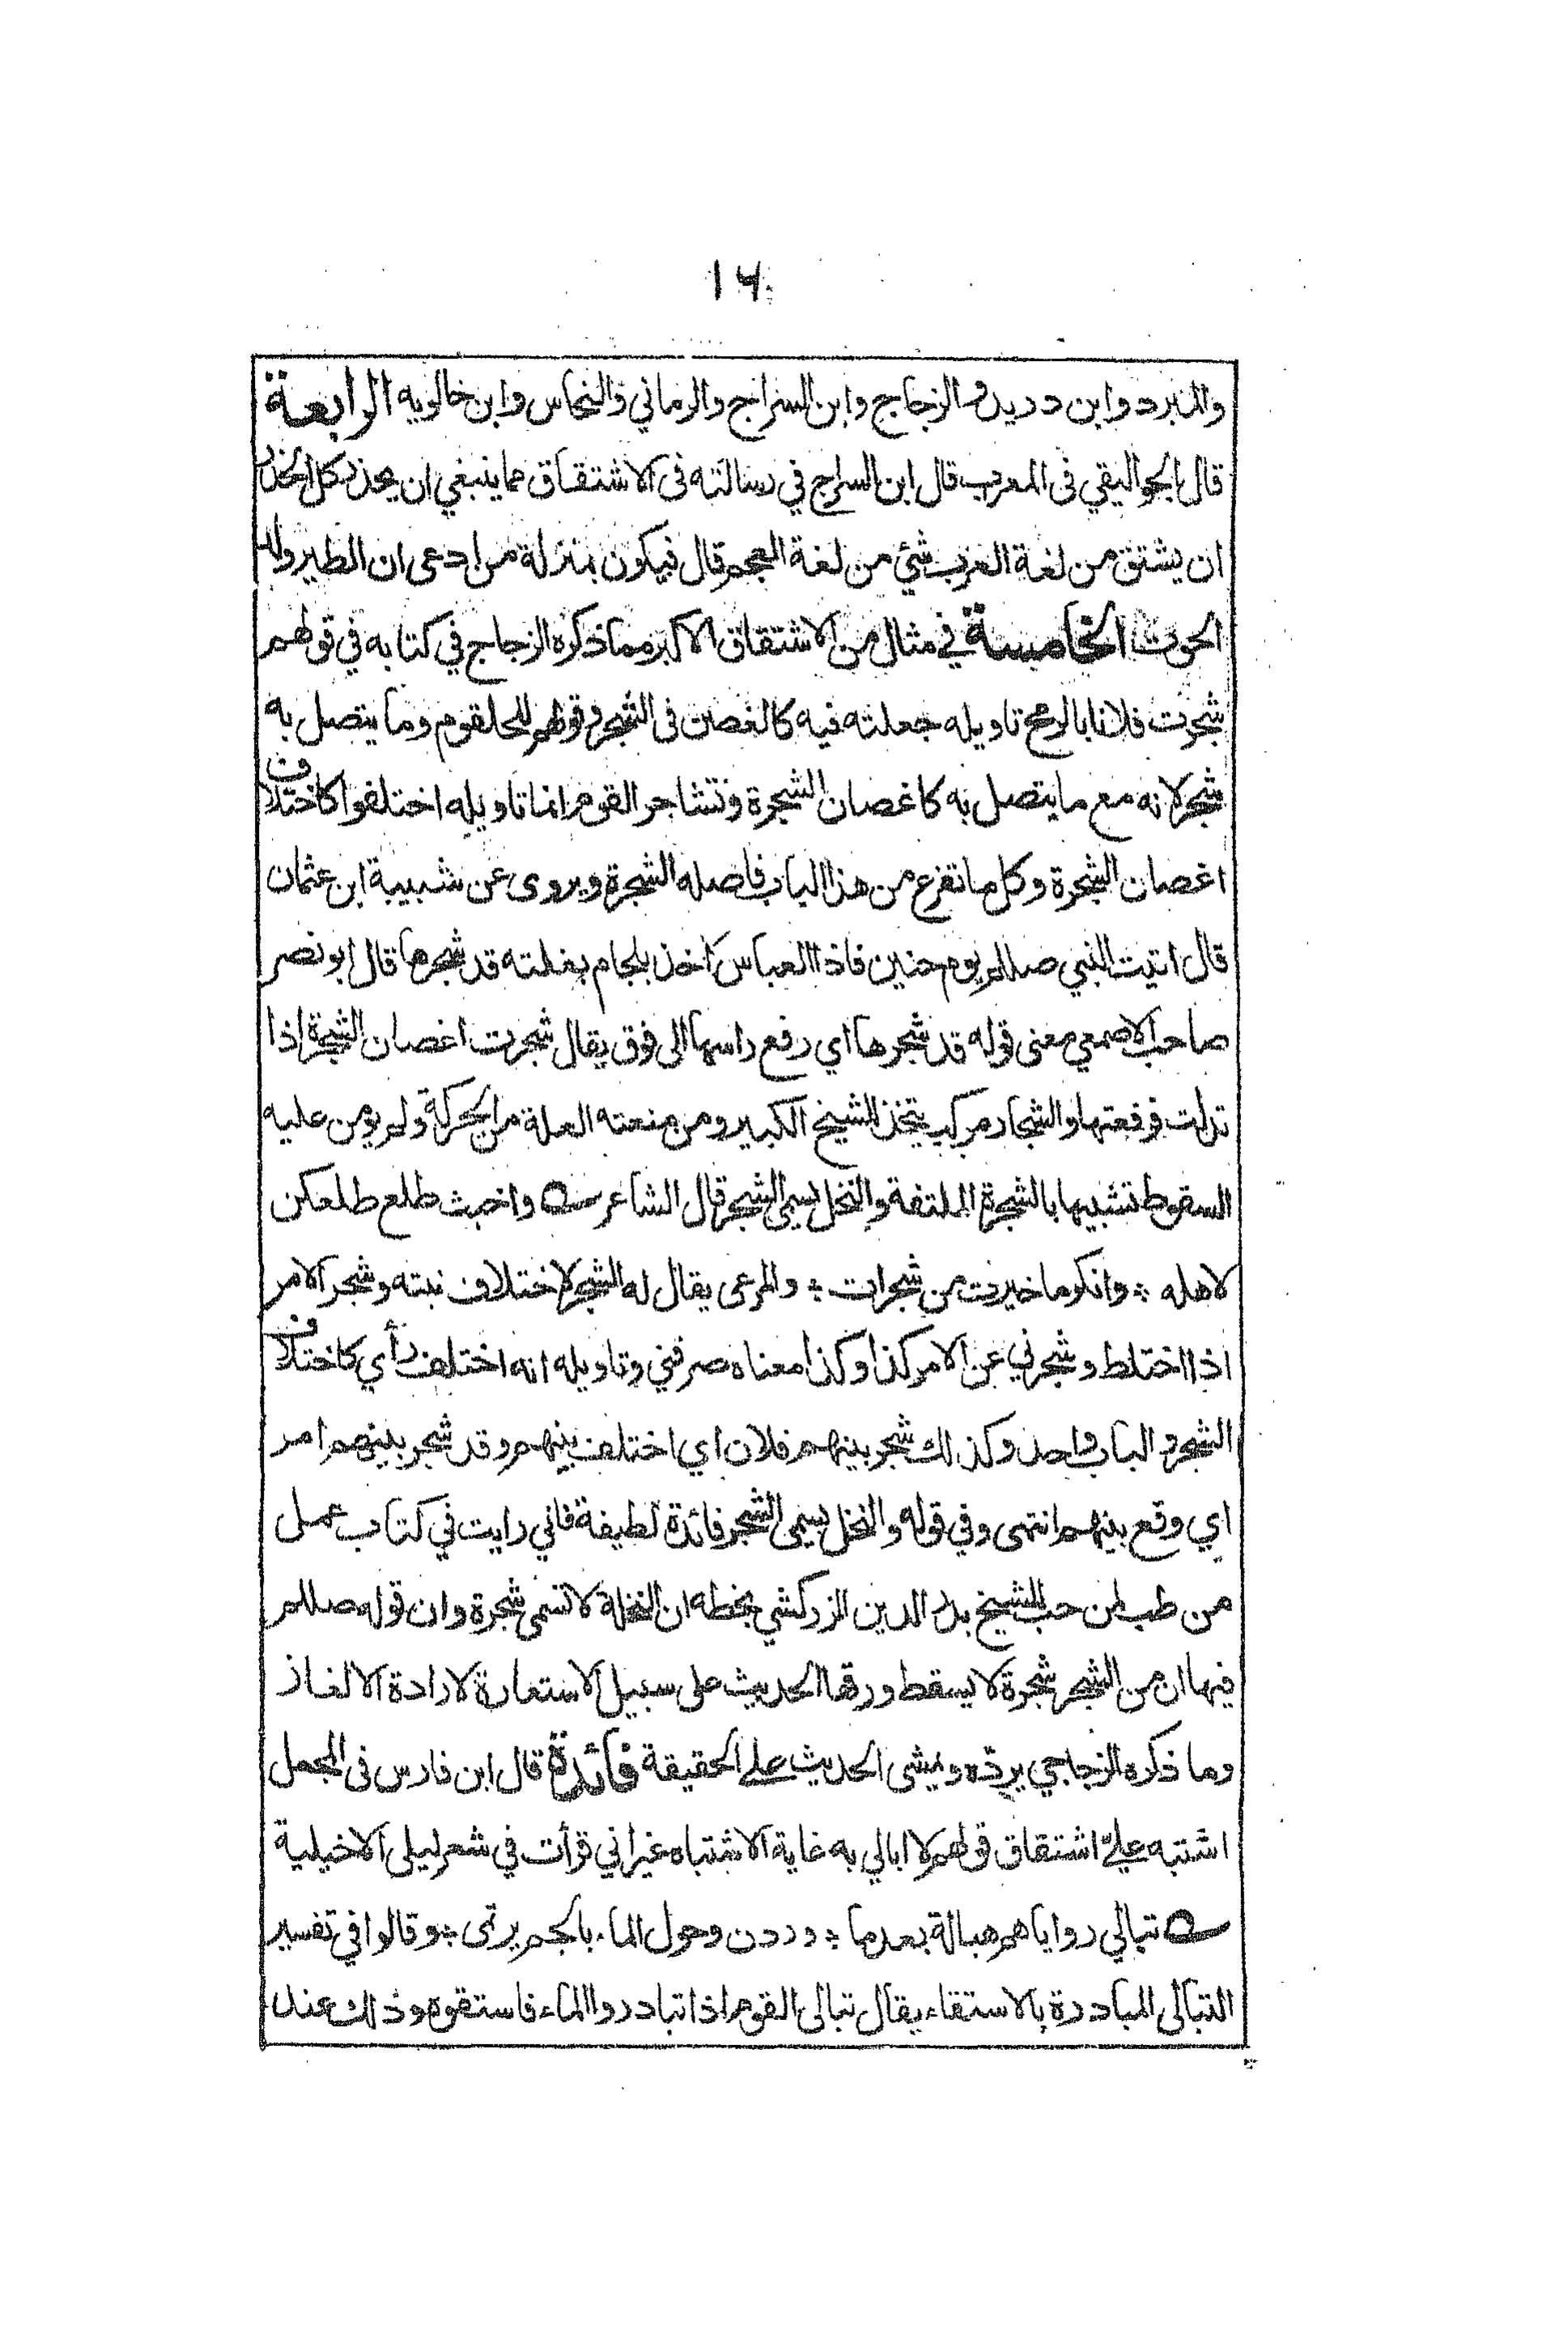 ١٦
والمبرد وابن دريد والزجاج وابن السراج والرماني والنحاس وابن خالويه الرابعة
قال الجواليقي فى المعرب قال ابن السراج في رسالته فى الاشتقاق مما ينبغي ان يحذر كل الحذر
ان يشتق من لغة العرب شئي من لغة العجم قال فيكون بمنزلة من ادعى ان الطير ولد
الحوت الخامسة في مثال من الاشتقاق الاكبر مما ذكره الزجاج في كتابه في قولهم
شجرت فلانا بالرمح تاويله جعلته فيه كالغصن فى الشجرة وقولهم للحلقوم وما يتصل به
شجر لانه مع ما يتصل به كاغصان الشجرة وتشاجر القوم انما تاويله اختلفوا كاختلاف
اغصان الشجرة وكل ما تفرع من هذا الباب فاصله الشجرة ويروى عن شبيبة ابن عثمان
قال اتيت النبي صللم يوم حنين فاذا العباس آخذ بلجام بغلته قد شجرها قال ابو نصر
صاحب الاصمعي معنى قوله قد شجرها اي رفع راسها الى فوق يقال شجرت اغصان الشجرة اذا
تدلت فرفعتها والشجار مركب يتخذ للشيخ الكبير ومن منعته العلة من الحركة ولم يومن عليه
السقوط تشبيها بالشجرة الملتفة والنخل يسمى الشجر قال الشاعر واخبث طلع طلعكن
لاهله ؛ وانكر ما خيرت من شجرات ؛ والمرعى يقال له الشجر لاختلاف نبته وشجر الامر
اذا اختلط وشجرني عن الامر كذا وكذا معناه صرفني وتاويله انه اختلف رأي كاختلاف
الشجر والباب واحد وكذلك شجر بينهم فلان اي اختلف بينهم وقد شجر بينهم امر
اي وقع بينهم انتهى وفي قوله والنخل يسمى الشجر فائدة لطيفة فاني رايت في كتاب عمل
من طب لمن حب للشيخ بدر الدين الزركشي بخطه ان النخلة لا تسمى شجرة وان قوله صللم
فيها ان من الشجر شجرة لا يسقط ورقها الحديث على سبيل الاستعارة لارادة الالغاز
وما ذكره الزجاجي يردّه ويمشى الحديث على الحقيقة فائدة قال ابن فارس فى المجمل
اشتبه عليّ اشتقاق قولهم لا ابالي به غاية الاشتباه غير اني قرأت في شعر ليلى الاخيلية
تبالي رواياهم هبالة بعدما ؛ وردن وحول الماء بالجم يرتمى ؛ وقالوا في تفسير
التبالى المبادرة بالاستقاء يقال تبالى القوم اذا تبادروا الماء فاستقوه وذلك عند